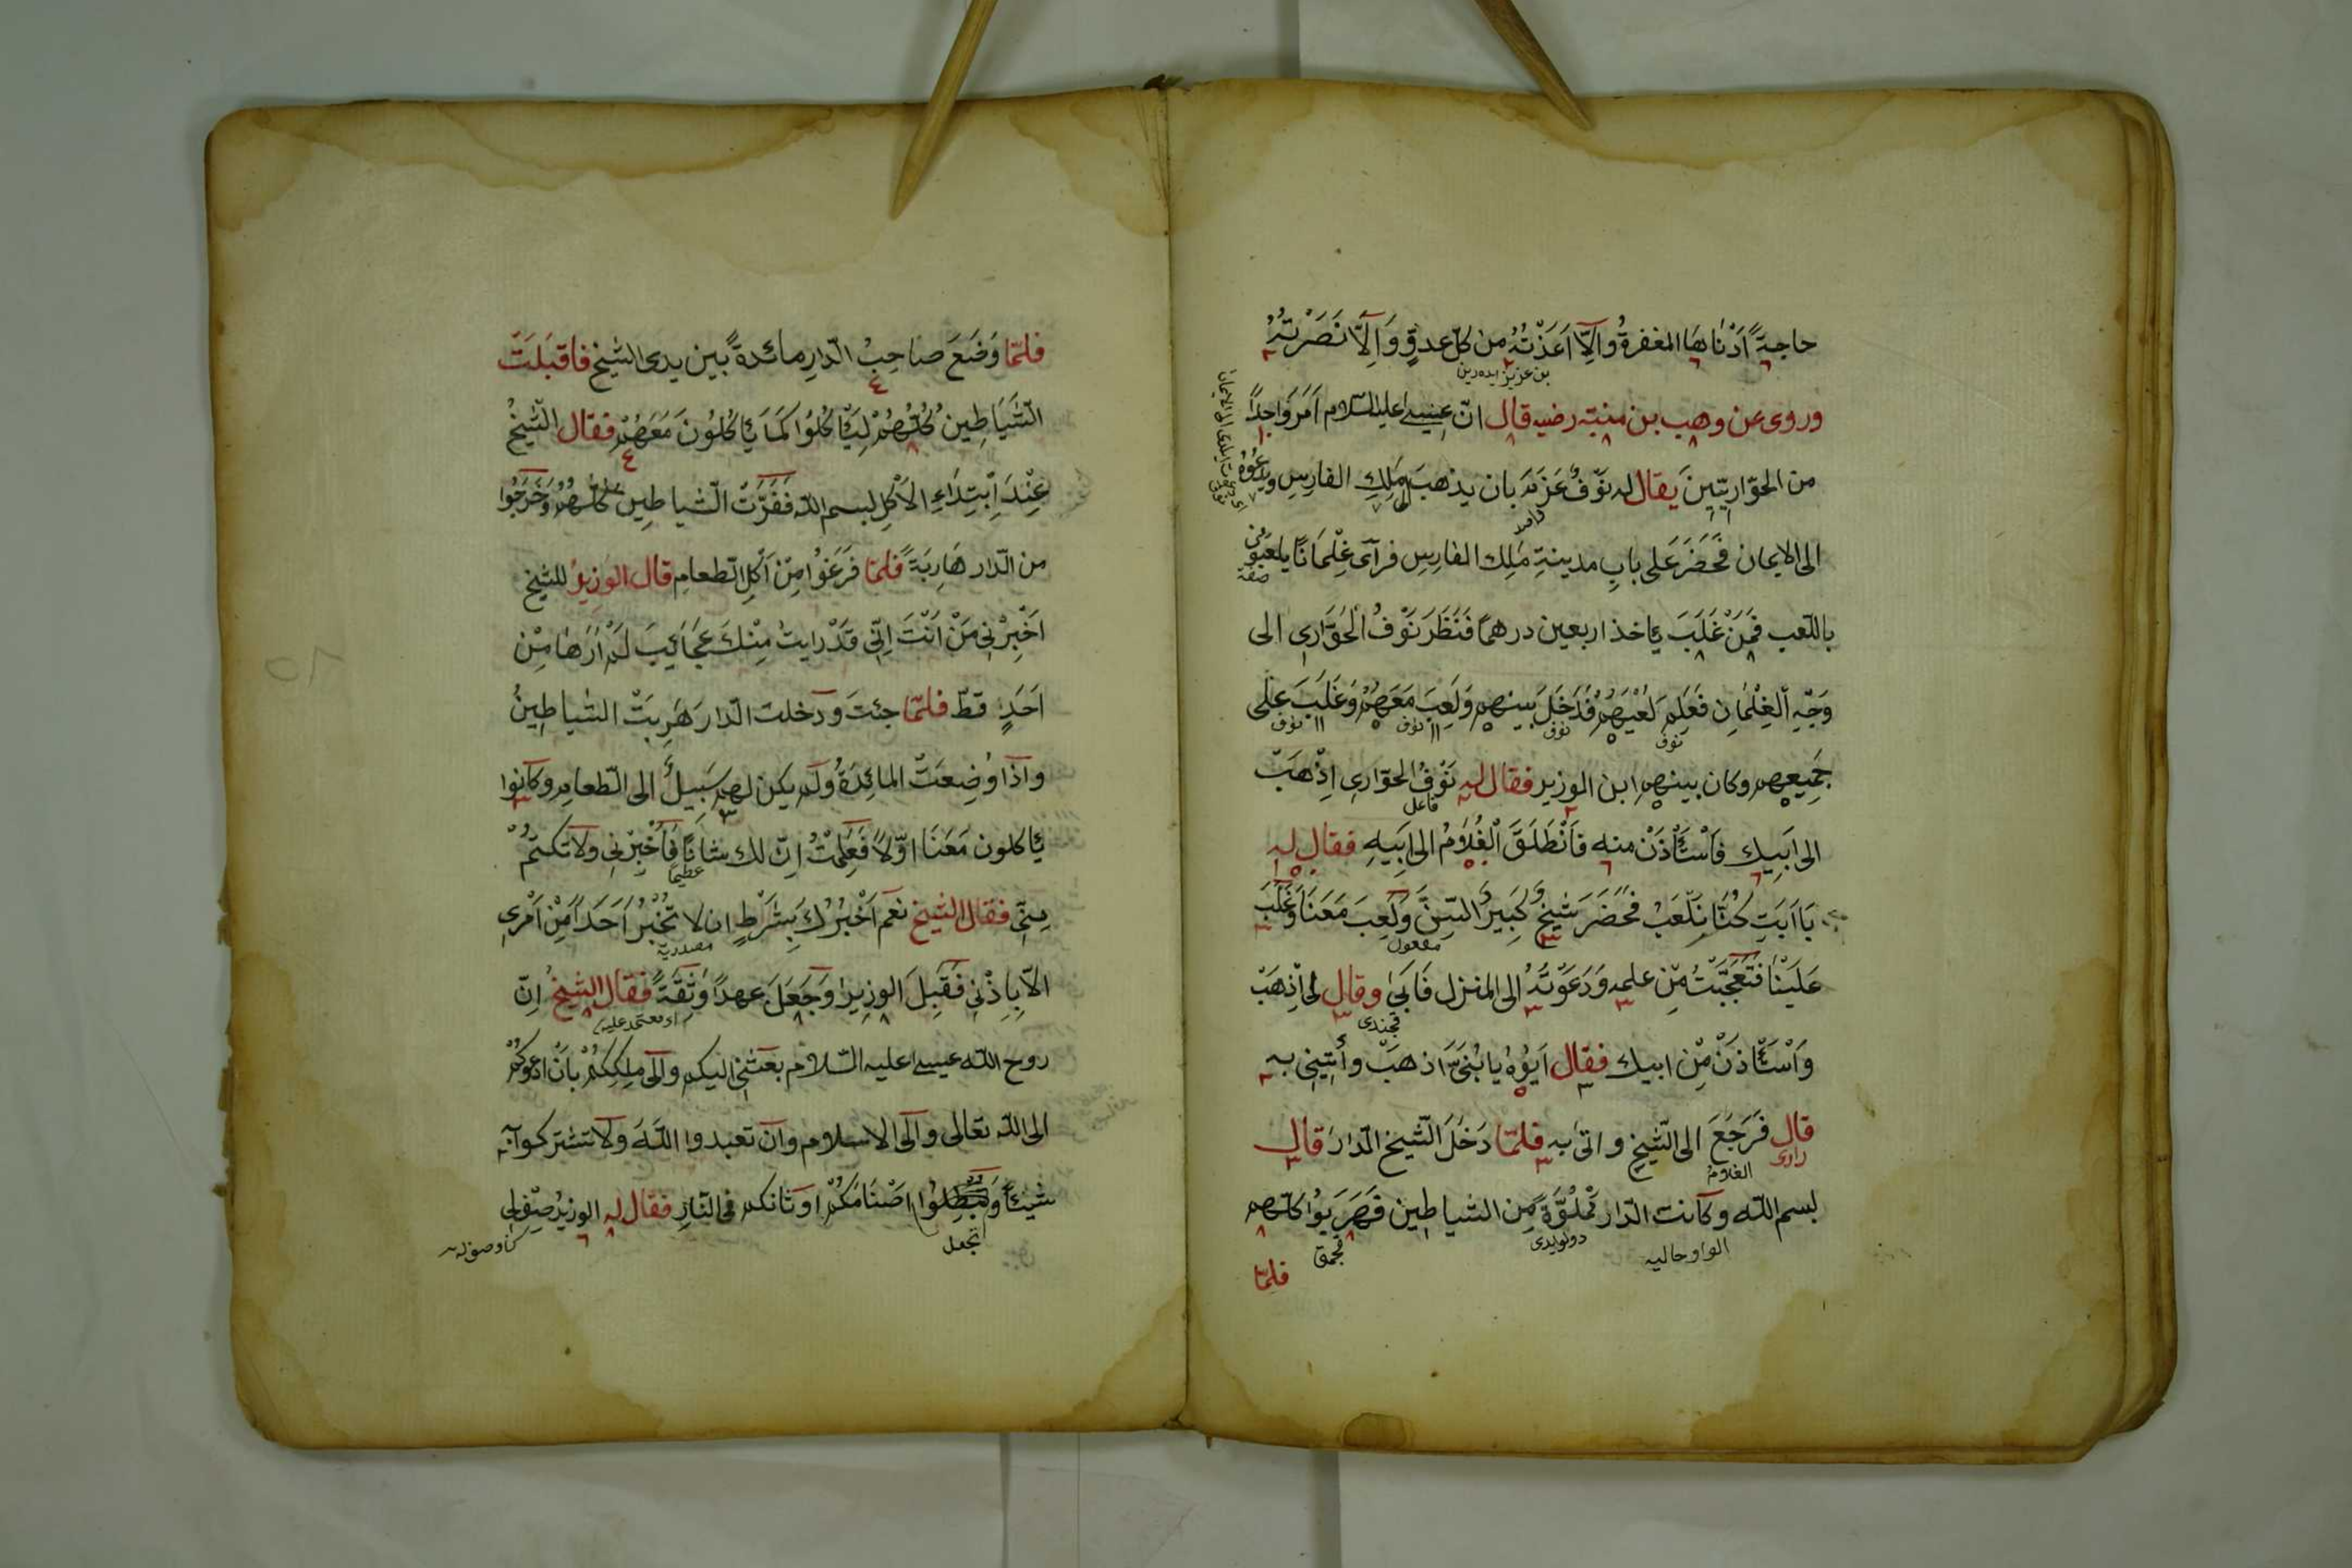 حاجةً اَدْنٰاهَا المغفرةُ واِلّاَ اَعَذْتُهُ من كلّ عدوٍّ وَاِلاَّ نَصَرْتُهُ
بن عزيز ايده رين
وروى عن وهب بن منبّه رضيه قال انّ عيسى عليه السّلام اَمَرَ وَاحِدًا
من الحوّاريّينَ يقال له نَوْفٌ بان يذهبَ مَلِكِ الفارِسِ ويدْعُوَهُ
الى الايمان فَحَضَرَ على بابِ مدينةِ مَلِك الفارِسِ فرآى غِلْمَانًا يلعَبُونَ
صفة
باللّعب فَمَنْ غَلَبَ يأخذ اربعين درهمًا فَنَظَرَ نَوْفُ الْحَوَّارى الى
وَجْهِ الْغِلْمٰانِ فَعَلِمَ لَعْبَهُمْ فَدَخَلَ بينهم وَلَعِبَ مَعَهُمْ وَغَلَبَ على
نوف نوف نوف نوف
جَمِيعِهِم وكان بينهم ابن الوزير فقال له نَوْفُ الحوّارى اِذْهَبْ
فاعل
الى اَبِيكَ فَاسْتَأْذَنْ منه فَانْطَلَقَ الْغُلَامُ الى اَبِيهِ فقال له
يَا اَبَتِ كُنَّا نَلْعَبُ فَحَضَرَ شَيْخٌ كَبِيرُ السِّنِّ وَلَعِبَ مَعَنَا وَغَلَبَ
مفعول
عَلَيْنَا فَتَعَجَّبْتُ مِنْ علمه وَدَعَوْتُهُ الى المنزل فَاَبٰى وقال لى اذْهَبْ
قچندى
وَاسْتَأْذَنْ مِنْ ابيك فقال اَبُوهُ يا بُنَىَّ اذهَبْ وأْتِينِى به
قال فَرَجَعَ الى الشّيخ واتى به فلمّا دَخَلَ الشّيخ الدّارَ قال
راوى الغلام
بسم اللّه وكانت الدّار مَمْلُوَّةً مِن الشياطين فَهَرَبُوا كلّهم
الواو حاليه دولوايدى قچمق
فلمّا
فلمّا وَضَعَ صاحِبُ الدّارِ مائدةً بين يدى الشيخ فاقبَلَتْ
الشَّيَاطِينُ كُلُّهُمْ لِيَأْكُلُوا كَمَا يَأْكُلُونَ مَعَهُمْ فقال الشّيخُ
عِنْدَ اِبْتِدَاءِ الاَكْلِ بسم اللّه فَفَرَّتْ الشّياطِين كلّهم وَخَرَجُوا
من الدّار هَارِبَةً فلمّا فَرَغُوا مِنْ اَكْلِ الطّعامِ قال الوزيرُ للشيخ
اَخْبِرْنِى مَنْ اَنْتَ اِنِّى قَدْ رايتُ مِنْكَ عَجَائِبَ لَمْ اَرَهَا مِنْ
اَحَدٍ قطّ فلمّا جئتَ ودخلت الدّار هَرِبَتْ الشياطِينُ
واذَا وُضِعَتْ المائِدَةُ ولم يكن لهم سَبِيلٌ الى الطّعامِ وكانوا
يأكلون مَعَنَا اوّلاً فَعَلِمْتُ اِنّ لك شانًا فَاَخْبِرْنِى ولا تكتمْ
عظيما
مِنّى فقال الشيخ نعم اَخْبُرُكَ بِشَرْطٍ ان لا تُخْبِرُ اَحَدًا مِنْ اَمْرِى
مصدرية
الاّ بِاِذْنِى فَقَبِلَ الوزيرُ وَجَعَلَ عهدًا وثِقَةً فقال الشيخُ اِنّ
اى معتمد عليه
روح اللّه عيسى عليه السّلام بعثنى اليكم والى مَلِكِكُمْ بِاَنْ ادعُوَكُمْ
الى اللّه تعالى والى الاسلام وان تعبدوا اللّهَ ولا تشركوا به
شيئاً وَتُبْطِلُوا اَصْنَامَكُمْ اوثانكم فى النّارِ فقال له الوزيرُ صِفْ لى
تجعل